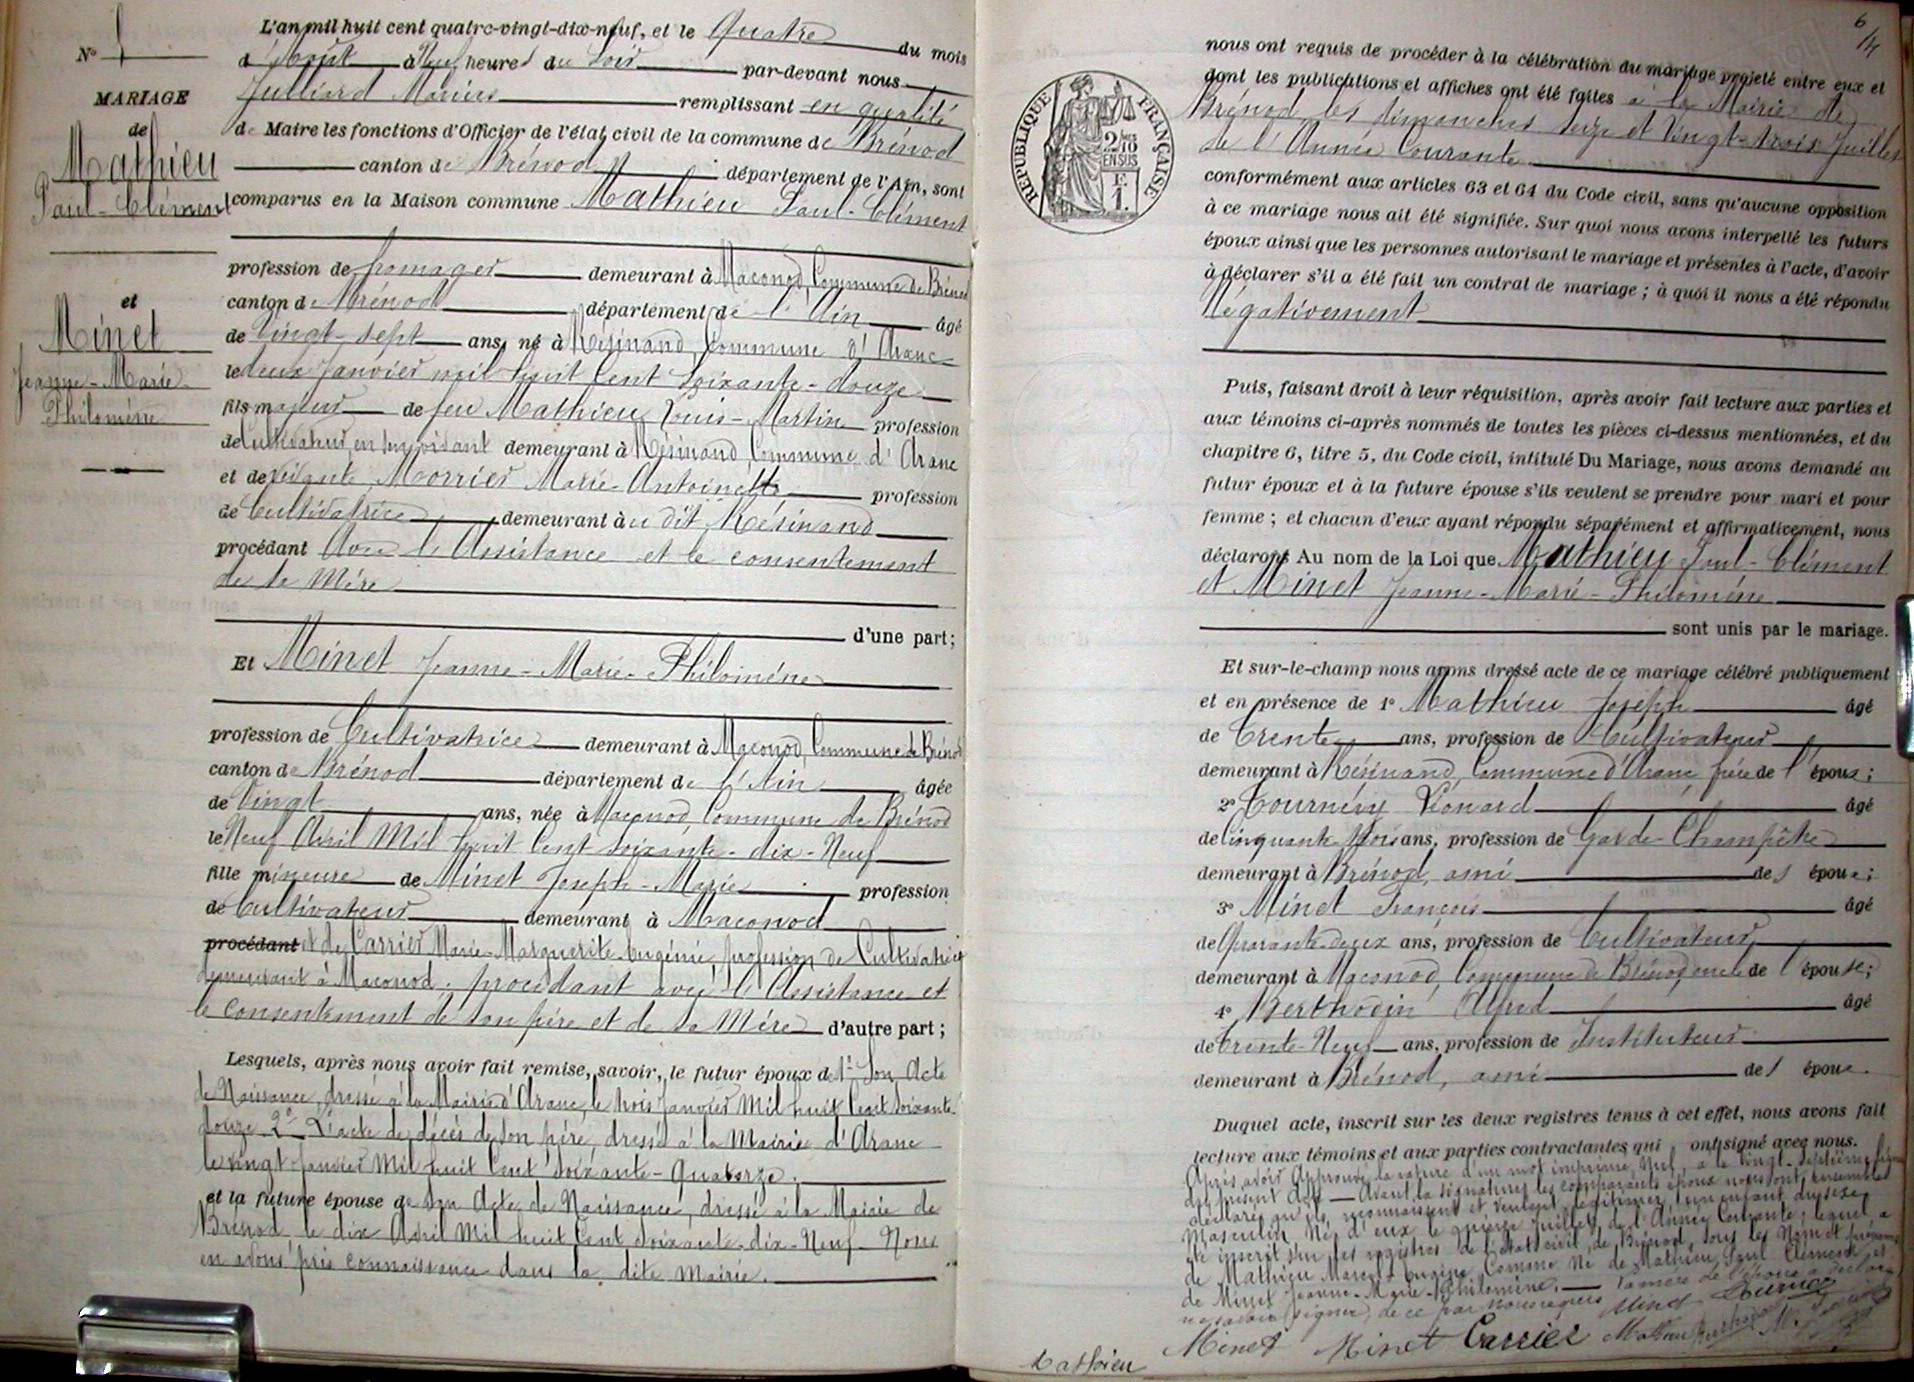 N° 1
MARIAGE
de
Mathieu
Paul-Clément
et
Minet
Jeanne-Marie-
Philomène
L'an mil huit cent quatre-vingt-dix-neuf, et le Quatre du mois
d'Août à Neuf heures du Soir par-devant nous
Julliard Marius remplissant en qualité
de Maire les fonctions d'Officier de l'état civil de la commune de Brénod
canton de Brénod département de l'Ain, sont
comparus en la Maison commune Mathieu Paul-Clément
profession de fromager demeurant à Maconod, Commune de Brénod
canton de Brénod département de l'Ain âgé
de Vingt-sept ans, né à Résinand, Commune d'Aranc
le deux Janvier mil huit Cent Soixante-douze
fils majeur de feu Mathieu Louis-Martin profession
de Cultivateur, en son vivant demeurant à Résinand, Commune d'Aranc
et de vivante Morrier Marie-Antoinette profession
de Cultivatrice demeurant au dit Résinand
procédant Avec l'Assistance et le consentement
de sa Mère
d'une part;
Et Minet Jeanne-Marie-Philomène
profession de Cultivatrice demeurant à Maconod, Commune de Brénod
canton de Brénod département de l'Ain âgée
de Vingt ans, née à Maconod, Commune de Brénod
le Neuf Avril Mil huit Cent Soixante-dix-Neuf
fille mineure de Minet Joseph-Marie profession
de Cultivateur demeurant à Maconod
procédant et de Carrier Marie-Marguerite Eugénie, profession de Cultivatrice
demeurant à Maconod, procédant avec l'Assistance et
le Consentement de son père et de sa Mère d'autre part;
Lesquels, après nous avoir fait remise, savoir, le futur époux de 1° Son Acte
de Naissance, dressé à la Mairie d'Aranc, le trois Janvier Mil huit Cent Soixante-
douze 2° L'acte de décès de son père, dressé à la Mairie d'Aranc
le vingt Janvier Mil huit Cent Soixante-Quatorze.
et la future épouse de Son Acte de Naissance, dressé à la Mairie de
Brénod le dix Avril Mil huit Cent Soixante-dix-Neuf Nous
en avons pris connaissance dans la dite Mairie.
6
RÉPUBLIQUE FRANÇAISE
2/10
EN SUS
nous ont requis de procéder à la célébration du mariage projeté entre eux et
dont les publications et affiches ont été faites à la Mairie de
Brénod les dimanches Seize et Vingt-trois Juillet
de l'Année Courante
conformément aux articles 63 et 64 du Code civil, sans qu'aucune opposition
à ce mariage nous ait été signifiée. Sur quoi nous avons interpellé les futurs
époux ainsi que les personnes autorisant le mariage et présentes à l'acte, d'avoir
à déclarer s'il a été fait un contrat de mariage; à quoi il nous a été répondu
Négativement
Puis, faisant droit à leur réquisition, après avoir fait lecture aux parties et
aux témoins ci-après nommés de toutes les pièces ci-dessus mentionnées, et du
chapitre 6, titre 5, du Code civil, intitulé Du Mariage, nous avons demandé au
futur époux et à la future épouse s'ils veulent se prendre pour mari et pour
femme; et chacun d'eux ayant répondu séparément et affirmativement, nous
déclarons Au nom de la Loi que Mathieu Paul-Clément
et Minet Jeanne-Marie-Philomène
sont unis par le mariage.
Et sur-le-champ nous avons dressé acte de ce mariage célébré publiquement
et en présence de 1° Mathieu Joseph âgé
de Trente ans, profession de Cultivateur
demeurant à Résinand, Commune d'Aranc frère de l'époux;
2° Tournéry Léonard âgé
de Cinquante-trois ans, profession de Garde-Champêtre
demeurant à Brénod, ami des époux;
3° Minet François âgé
de Quarante-deux ans, profession de Cultivateur
demeurant à Maconod, Commune de Brénod, oncle de l'épouse;
4° Berthodin Alfred âgé
de Trente-Neuf ans, profession de Instituteur
demeurant à Brénod, ami des époux.
Duquel acte, inscrit sur les deux registres tenus à cet effet, nous avons fait
lecture aux témoins et aux parties contractantes qui ont signé avec nous.
Après avoir Approuvé la rature d'un mot imprimé, Nul, à la vingt-septième ligne
du présent Acte — Avant la signature les comparants époux nous ont ensemble
déclaré qu'ils reconnaissent et veulent légitimer, un enfant du sexe
Masculin Né d'eux le quinze Juillet de l'Année Courante, lequel a
été inscrit sur les registres de l'état civil de Brénod, sous les Nom et prénoms
de Mathieu Marcel Eugène, Comme Né de Mathieu Paul Clément et
de Minet Jeanne-Marie-Philomène. — la mère de l'époux a déclaré
ne savoir signer, de ce par nous requis
Minet
Mathieu
Minet
Minet
Carrier